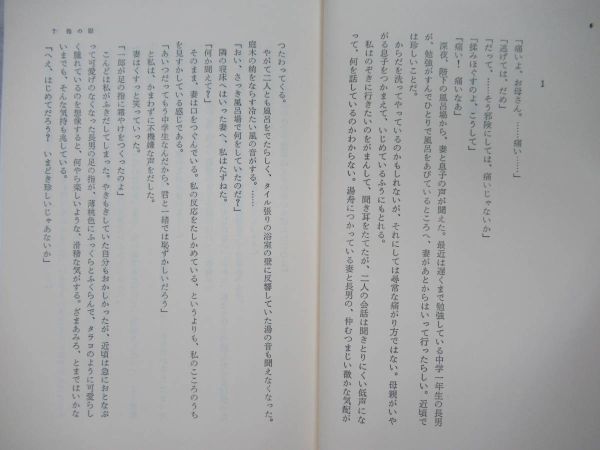 1
「痛いよ。お母さん。……痛い……」
「逃げては、だめ」
「だって、……そう邪険にしては、痛いじゃないか」
「揉みほぐすのよ、こうして」
「痛い！ 痛いなあ」
深夜、階下の風呂場から、妻と息子の声が聞えた。最近は遅くまで勉強している中学一年生の長男
が、勉強がすんでひとりで風呂をあびているところへ、妻があとからはいって行ったらしい。近頃で
は珍しいことだ。
からだを洗ってやっているのかもしれないが、それにしては尋常な痛がり方ではない。母親がいや
がる息子をつかまえて、いじめているふうにもとれる。
私はのぞきに行きたいのをがまんして、聞き耳をたてたが、二人の会話は聞きとりにくい低声にな
って、何を話しているのかわからない。湯舟につかっている妻と長男の、仲むつまじい微かな気配が
つたわってくる。
やがて二人とも風呂をでたらしく、タイル張りの浴室の壁に反響していた湯の音も聞えなくなった。
庭木の梢をならす冷たい風の音がする。……
「おい、さっき風呂場で何をしていたのだ？」
隣の寝床へはいった妻へ、私はたずねた。
「何か聞えて？」
そのまま、妻は口をつぐんでいる。私の反応をたしかめている、というよりも、私のこころのうち
を見すかしている感じである。
「あいつだってもう中学生なんだから、君と一緒では恥ずかしいだろう」
と私は、かまわずに不機嫌な声をだした。
妻はくすっと笑っていった。
「一郎が足の指に霜やけをつくったのよ」
こんどは私がふきだしてしまった。やきもきしていた自分もおかしかったが、近頃は急におとなぶ
って可愛げのなくなった長男の足の指が、薄桃色にふっくらとふくらんで、タラコのように可愛らし
く腫れているのを想像すると、何やら楽しいような、滑稽な気がする。ざまあみろ、とまではいかな
いまでも、そんな気持も兆している。
「へえ、はじめてだろう？ いまどき珍しいじゃあないか」